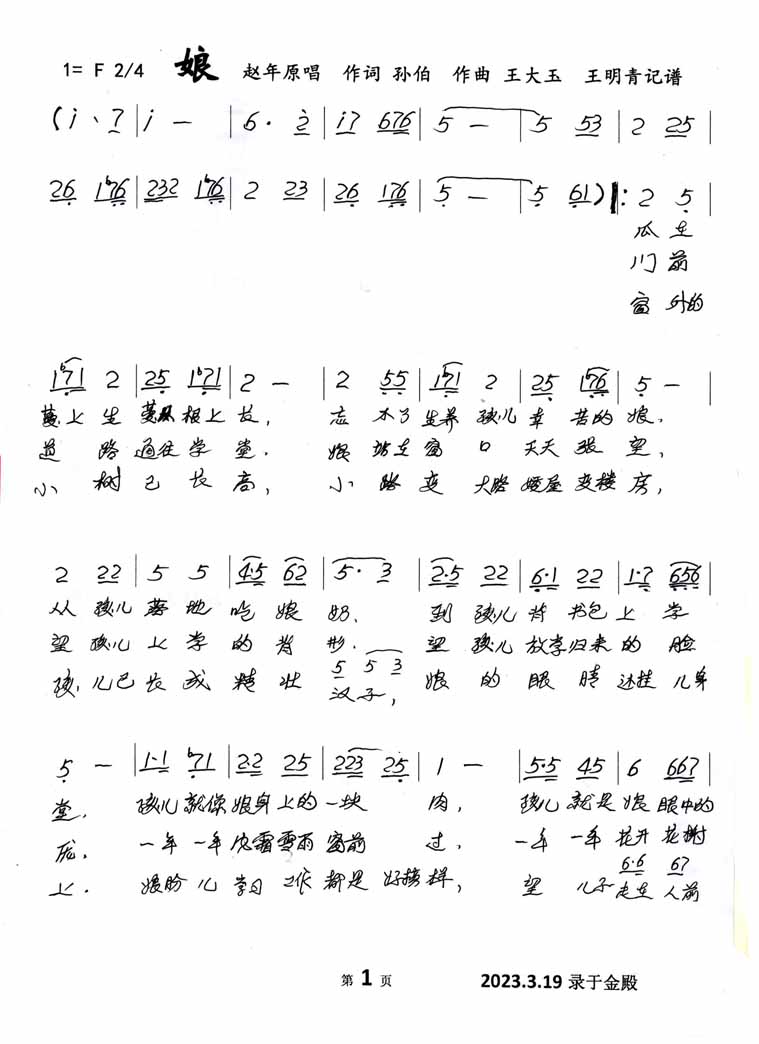 1= F 2/4 娘 赵年原唱 作词 孙伯 作曲 王大玉 王明青记谱
(i、7 | i — | 6· 2 | i7 676 | 5 — | 5 53 | 2 25 |
26 1♭76 | 232 1♭76 | 2 23 | 26 176 | 5 — | 5 61) ‖: 2 5 |
瓜 在
门 前
窗 外的
1♭71 2 | 25 1♭71 | 2 — | 2 55 | 1♭71 2 | 25 1♭76 | 5 — |
蔓上 生 蔓从 根上 长, 忘 不了 生养 孩儿 辛 苦的 娘.
道 路 通往 学 堂. 娘 站在 窗 口 天天 张 望,
小 树 已 长 高, 小 路 变 大路 矮屋 变楼 房,
2 22 | 5 5 | 4·5 62 | 5· 3 | 2·5 22 | 6·1 22 | 1·7 656 |
从 孩儿 落 地 吃 娘 奶. 到 孩儿 背 书包 上 学
望 孩儿 上 学 的 背 形. 望 孩儿 放学 归来 的 脸
5 5 3
孩 儿已 长 成 精 壮 汉 子, 娘 的 眼 睛 还挂 儿 身
5 — | 1·1 ♭71 | 2·2 25 | 223 25 | 1 — | 5·5 45 | 6 667 |
堂. 孩儿 就像 娘身 上的 一块 肉, 孩儿 就是 娘 眼中的
庞. 一年 一年 风霜 雪雨 窗前 过. 一年 一年 花开 花谢
6·6 67
上. 娘盼 儿 学习 工作 都是 好榜 样, 望 儿子 走在 人前
第 1 页 2023.3.19 录于金殿